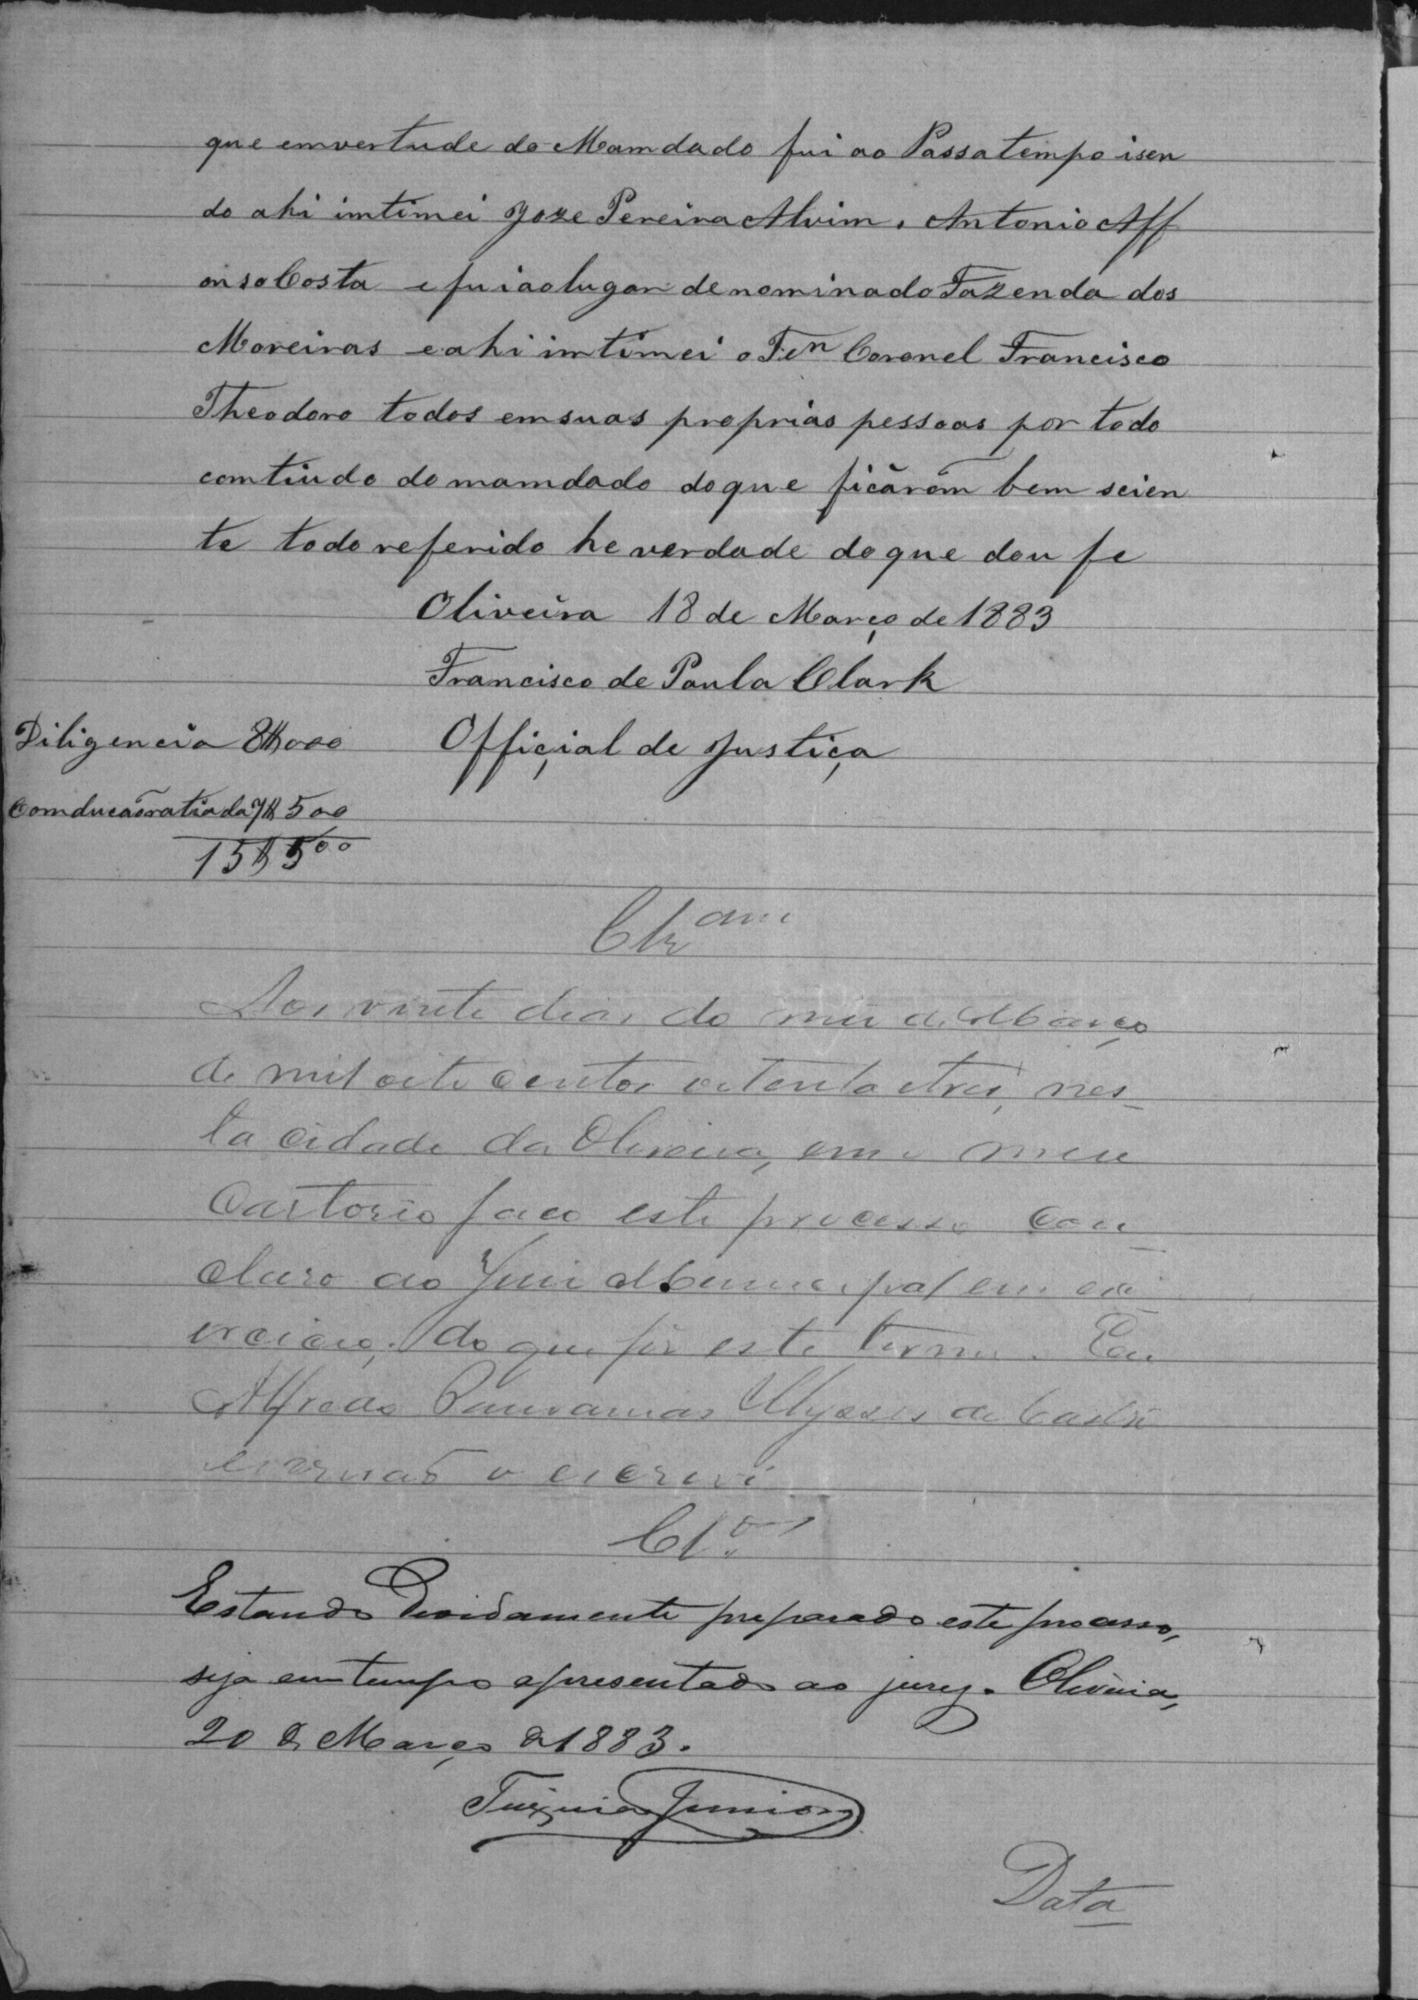 que emvertude do Mamdado fui ao Passatempo isen
do ahi imtimei Joze Pereira Alvim, Antonio Aff
onso Costa e fui ao lugar denominado Fazenda dos
Moreiras e ahi imtimei o Ten Coronel Francisco
Theodoro todos em suas proprias pessoas por todo
comtiudo do mamdado do que ficárom bem scien
te todo referido he verdade do que dou fe
Oliveira 18 de Março de 1883
Francisco de Paula Clark
Diligencia 8$000 Official de Justiça
Comducão ratiada 7$500
15$500
Aos vinte dias do mes de Março
de mil oito centos oitenta e tres, nes-
ta cidade da Oliveira, em o meu
Cartorio faço este processo con-
cluso ao Juiz Municipal em ex-
ercicio; do que fiz este termo. Eu
Alfredo Ulysses de Castro
escrivaõ o escrevi
Cl.os
Estando devidamente preparado este processo,
seja em tempo apresentado ao jury. Oliveira,
20 de Março de 1883.
Junior
Data